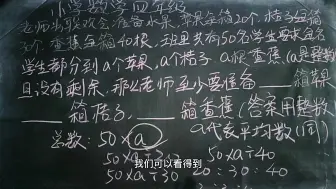 小学数学四年级
老师为联欢会准备水果,苹果每箱20个,桔子每箱
30个,香蕉每箱40根,班里共有50名学生要求每名
学生都分到a个苹果,a个桔子,a根香蕉,(a是整数)
且没有剩余,那么老师至少要准备____箱苹果
____箱桔子,____箱香蕉(答案用整数
总数:50×a a代表平均数(同)
50×a÷20 50×a÷40
50×a÷30 20:30:40
我们可以看得到